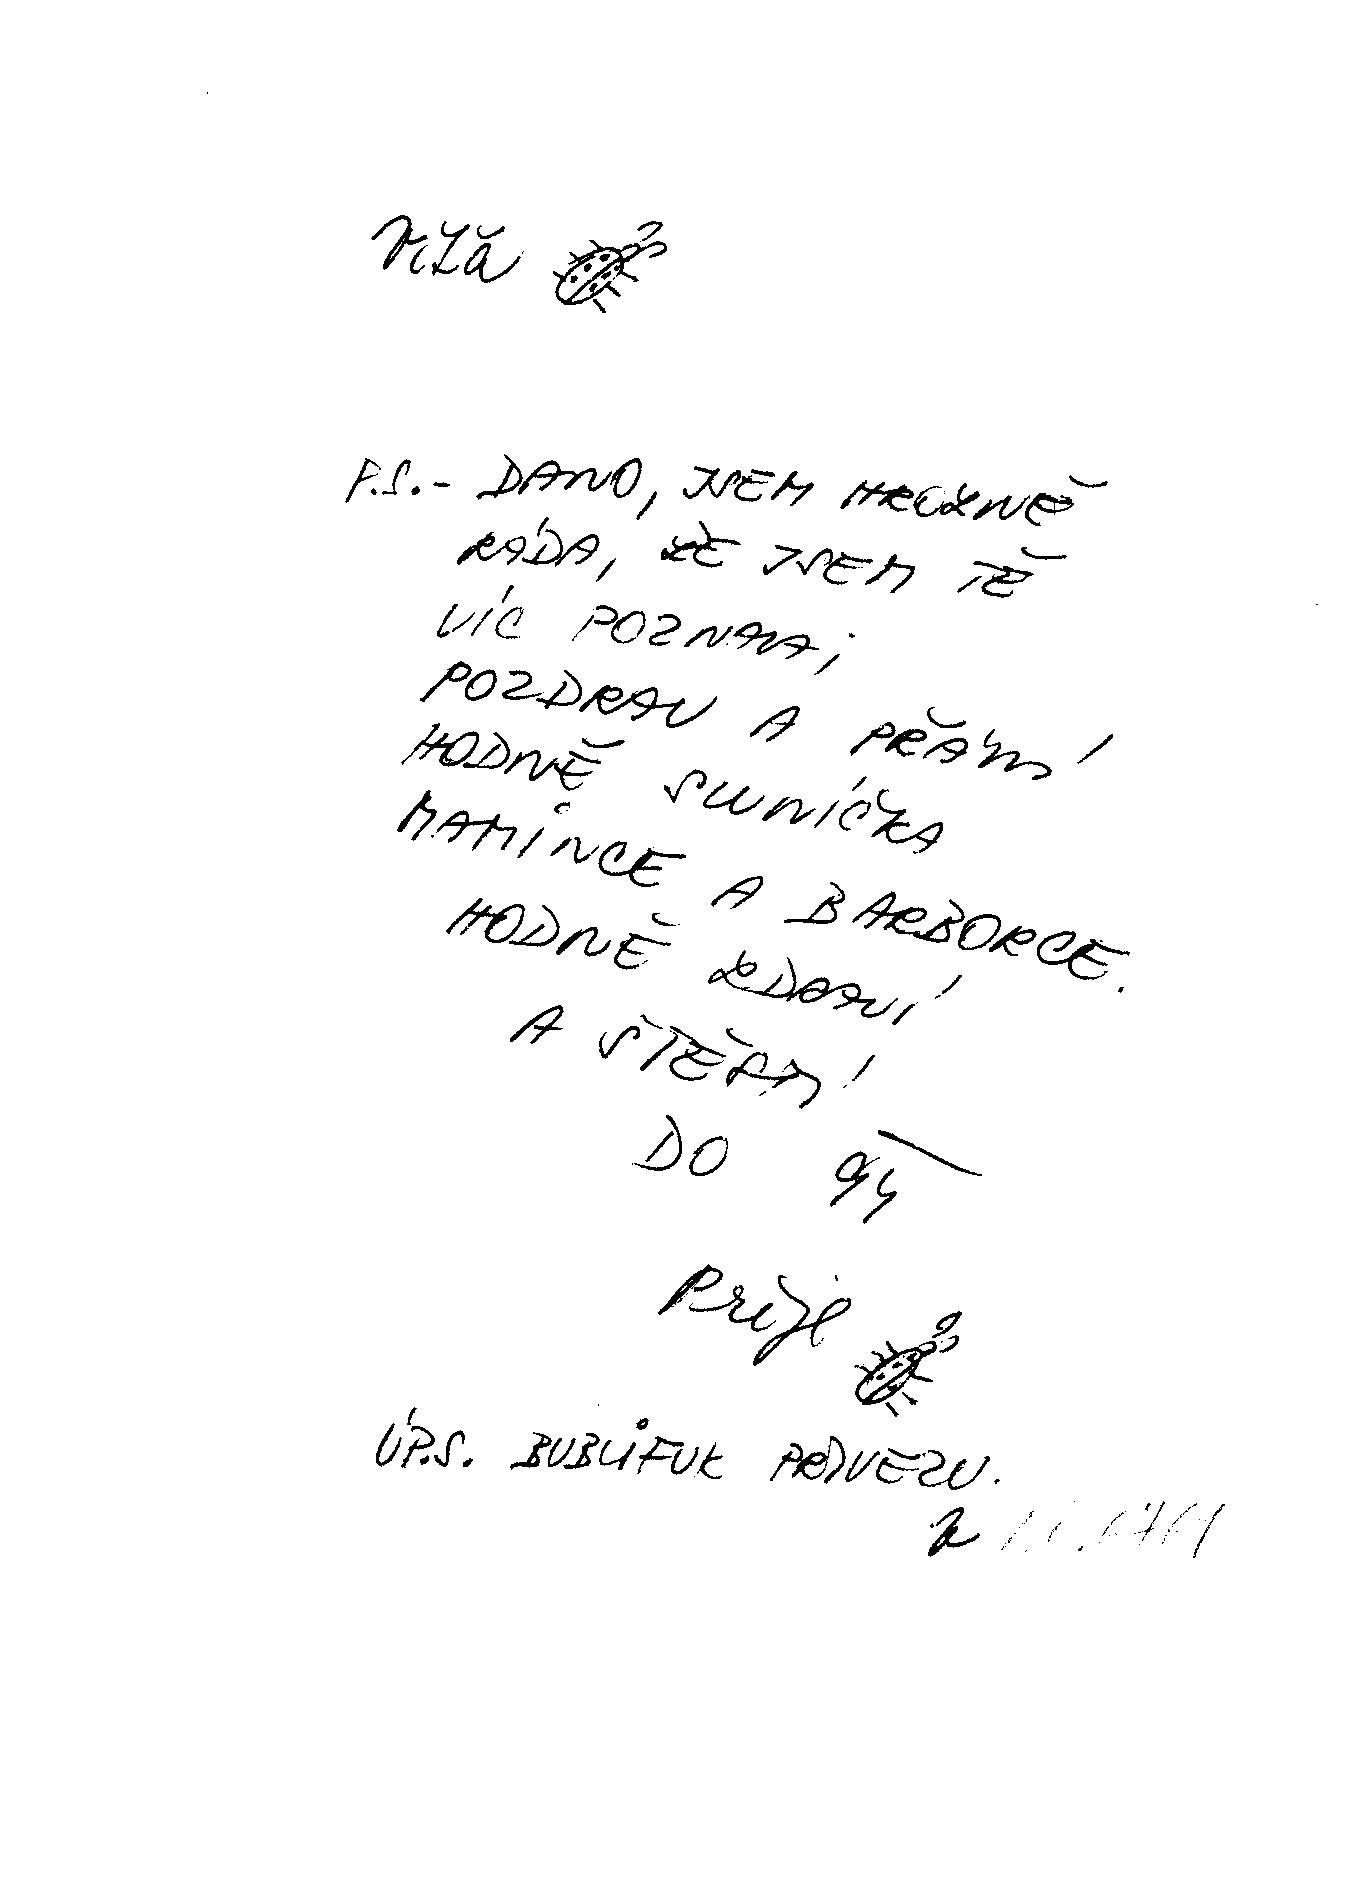 P.S. - DANO, JSEM HROZNĚ
RÁDA, ŽE JSEM TĚ
VÍC POZNALA;
POZDRAV A PŘÁNÍ
HODNĚ SLUNÍČKA
MAMINCE A BARBORCE.
HODNĚ ZDRAVÍ
A ŠTĚSTÍ
DO 94
PŘEJE
ÚP.S. BUBLIFUK PŘIVEZU.